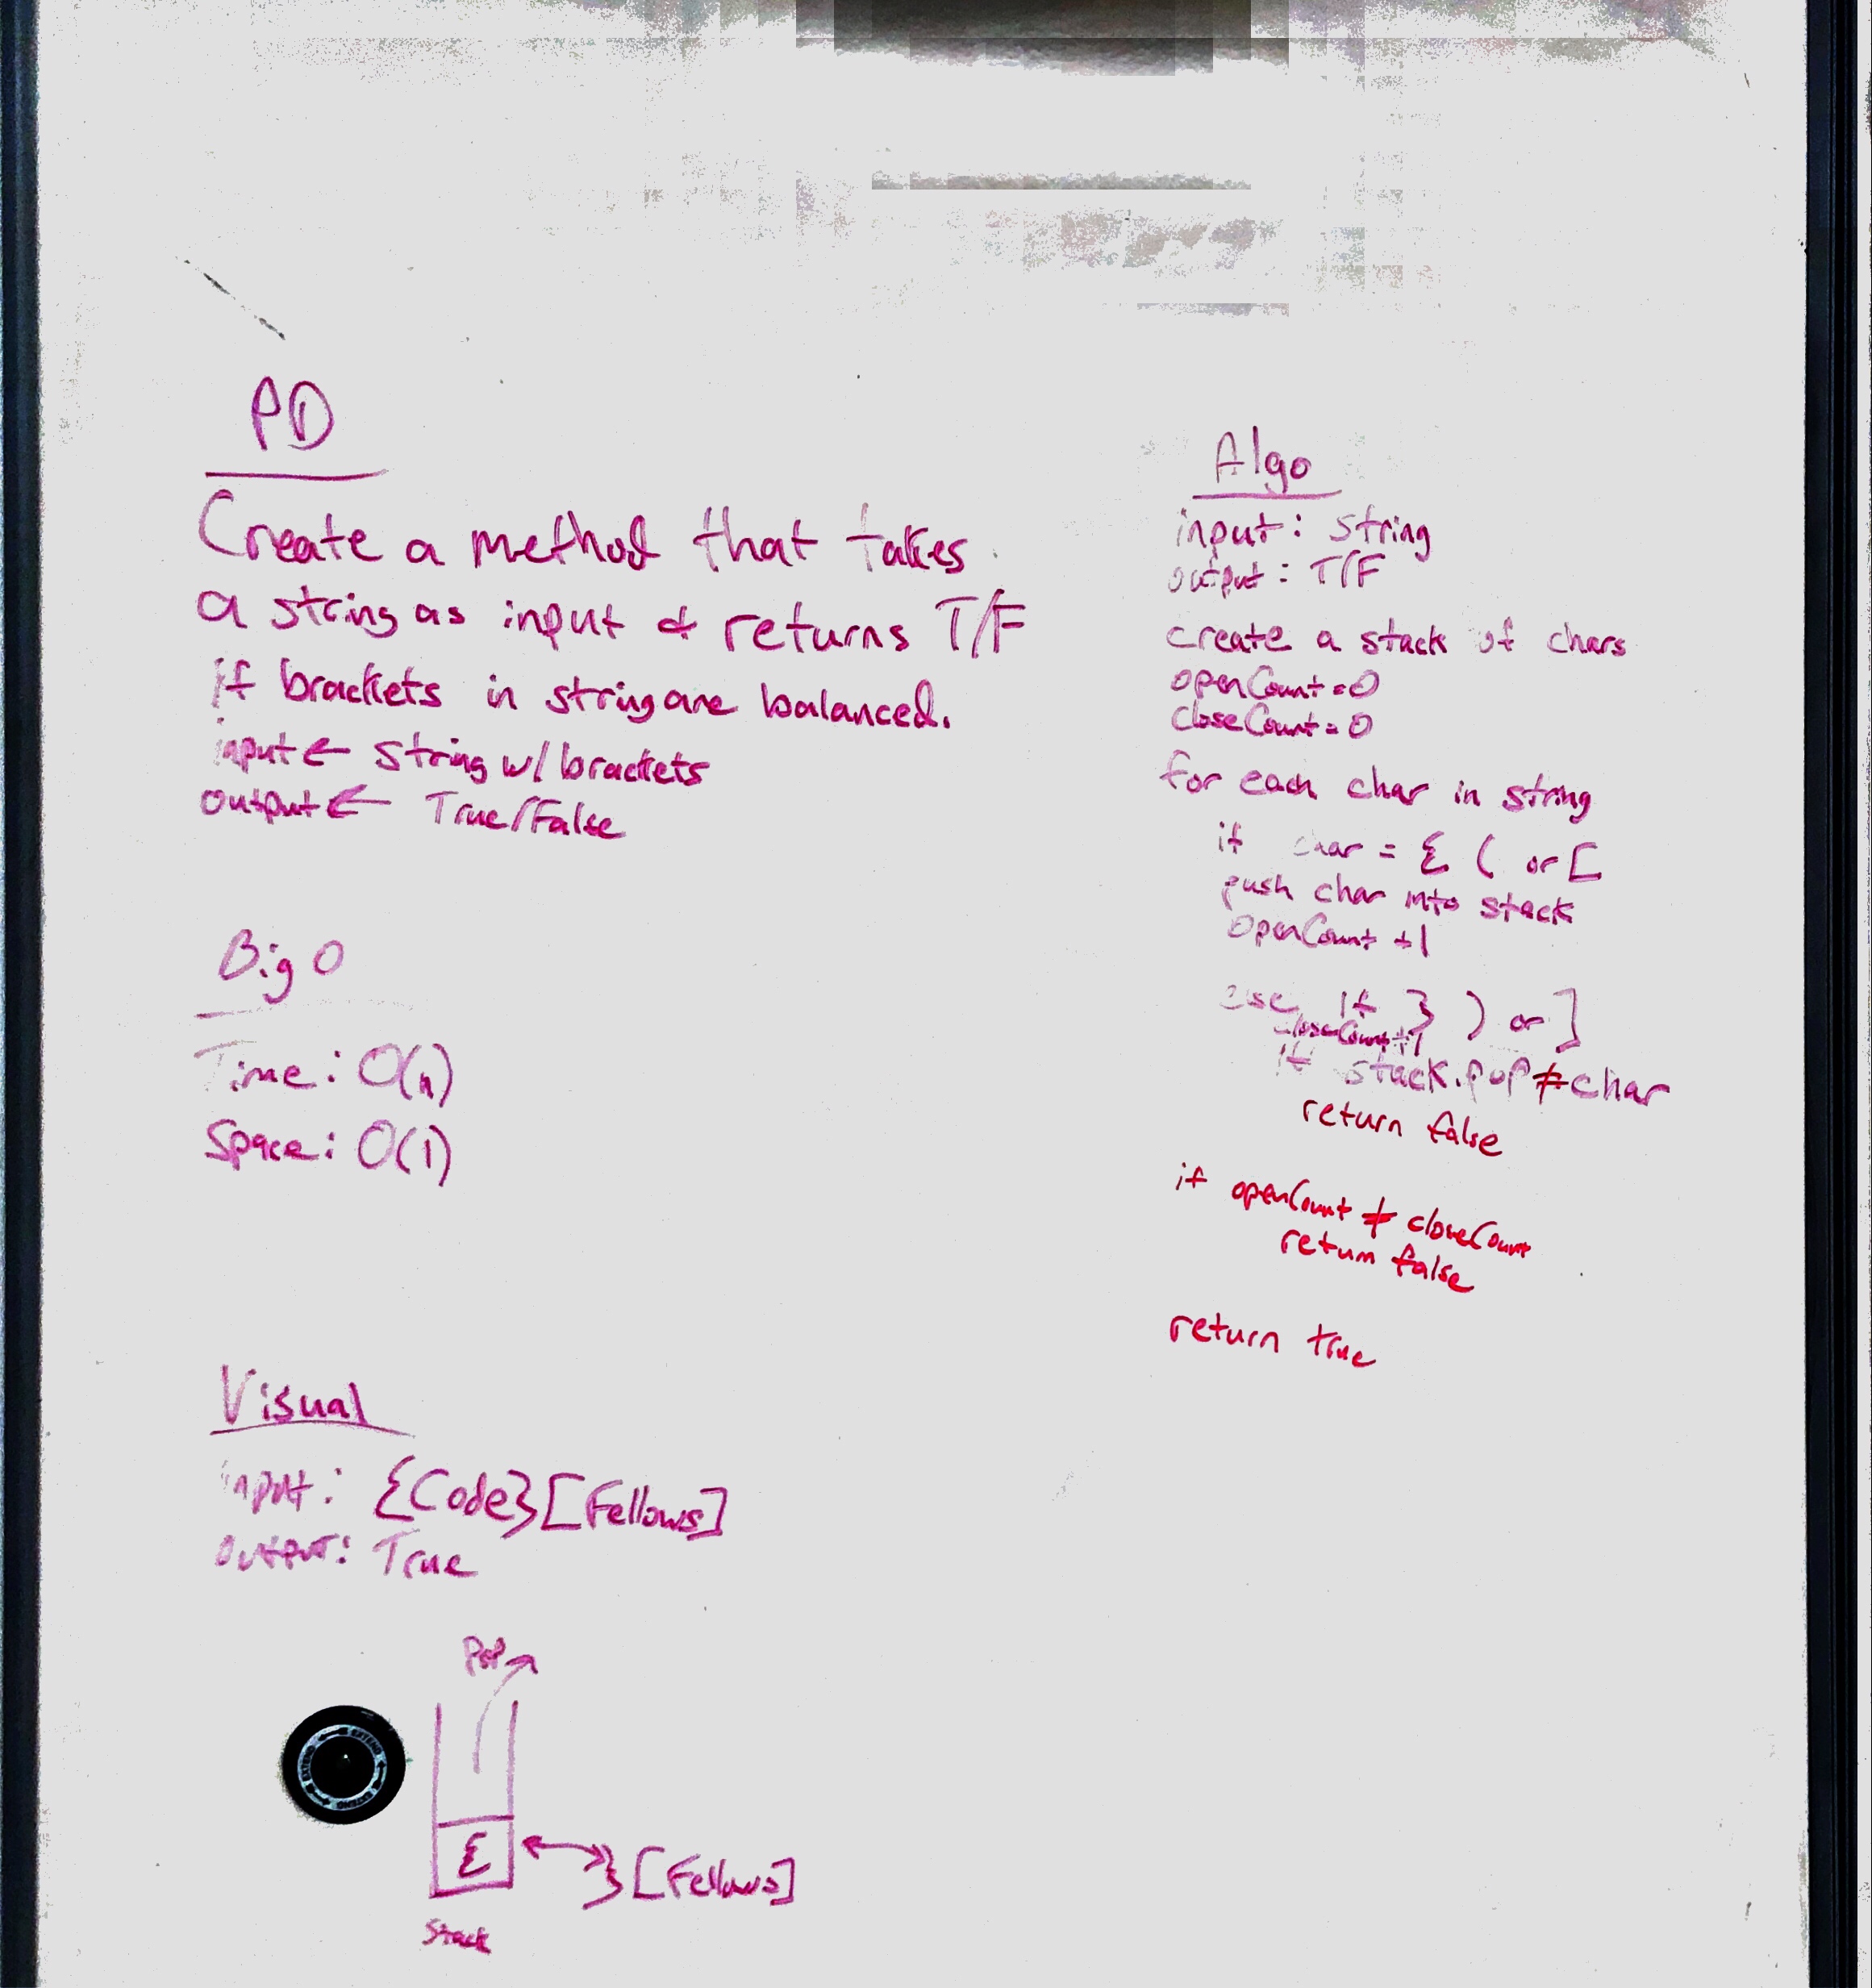 PD
Create a method that takes
a string as input & returns T/F
if brackets in string are balanced.
input ← string w/ brackets
output ← True/False
Big O
Time: O(n)
Space: O(1)
Visual
input: {Code}[Fellows]
output: True
Pop
{
}[Fellows]
Stack
Algo
input: string
output: T/F
create a stack of chars
openCount = 0
closeCount = 0
for each char in string
if char = { ( or [
push char into stack
openCount +1
else if } ) or ]
closeCount +1
if stack.pop ≠ char
return false
if openCount ≠ closeCount
return false
return true